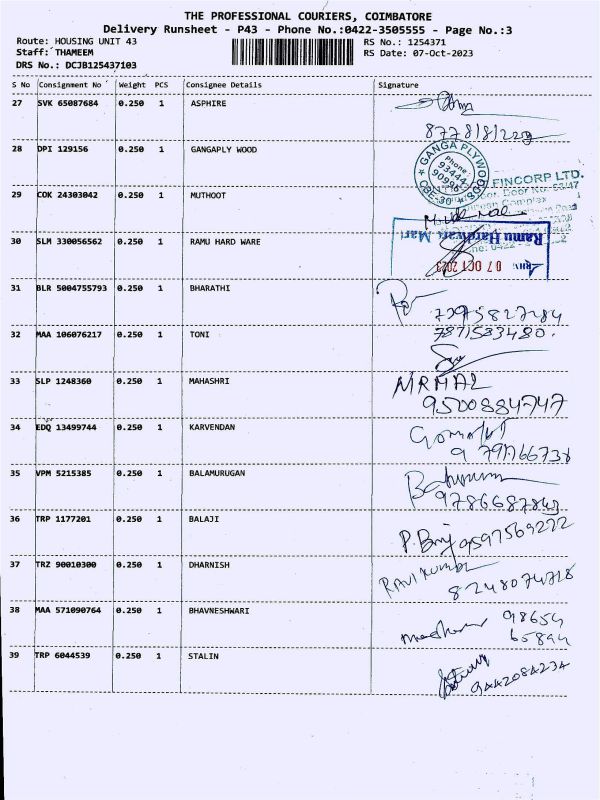 THE PROFESSIONAL COURIERS, COIMBATORE
Delivery Runsheet - P43 - Phone No.:0422-3505555 - Page No.:3
Route: HOUSING UNIT 43
RS No.: 1254371
Staff: THAMEEM
RS Date: 07-Oct-2023
DRS No.: DCJB125437103
S No Consignment No Weight PCS Consignee Details Signature
27 SVK 65087684 0.250 1 ASPHIRE
28 DPI 129156 0.250 1 GANGAPLY WOOD
GANGA PLYWOOD
Phone:
93444
90996
CBE-30
FINCORP LTD.
29 COK 24303042 0.250 1 MUTHOOT
30 SLM 330056562 0.250 1 RAMU HARD WARE
Ramu Hardware Mart
07 OCT 2023
31 BLR 5004755793 0.250 1 BHARATHI
7795827284
32 MAA 106076217 0.250 1 TONI
7871583480.
33 SLP 1248360 0.250 1 MAHASHRI
NRMAL
9500884747
34 EDQ 13499744 0.250 1 KARVENDAN
35 VPM 5215385 0.250 1 BALAMURUGAN
9786687843
36 TRP 1177201 0.250 1 BALAJI
9597569222
37 TRZ 90010300 0.250 1 DHARNISH
RAVI KUMAR
8248074728
38 MAA 571090764 0.250 1 BHAVNESHWARI
98654
65894
39 TRP 6044539 0.250 1 STALIN
9442084234